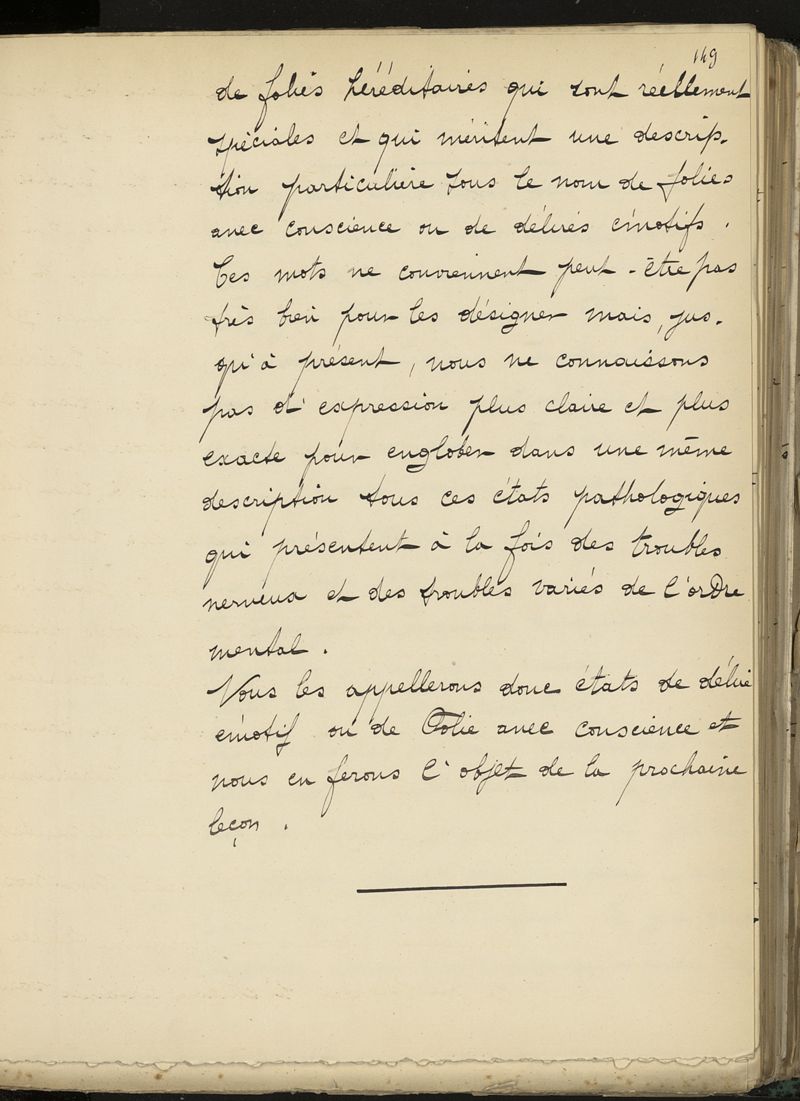 149
de folies héréditaires qui sont réellement
spéciales et qui méritent une descrip-
tion particulière sous le nom de folies
avec conscience ou de délires émotifs.
Ces mots ne conviennent peut-être pas
très bien pour les désigner mais, jus-
qu'à présent, nous ne connaissons
pas d'expression plus claire et plus
exacte pour englober dans une même
description tous ces états pathologiques
qui présentent à la fois des troubles
nerveux et des troubles variés de l'ordre
mental.
Nous les appellerons donc états de délire
émotif ou de Folie avec conscience et
nous en ferons l'objet de la prochaine
leçon.